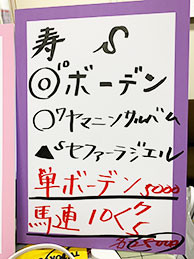 寿 S
◎ボーデン
○ヤマニンサルバム
▲セファーラジエル
単ボーデン5000
馬連 10ぐ